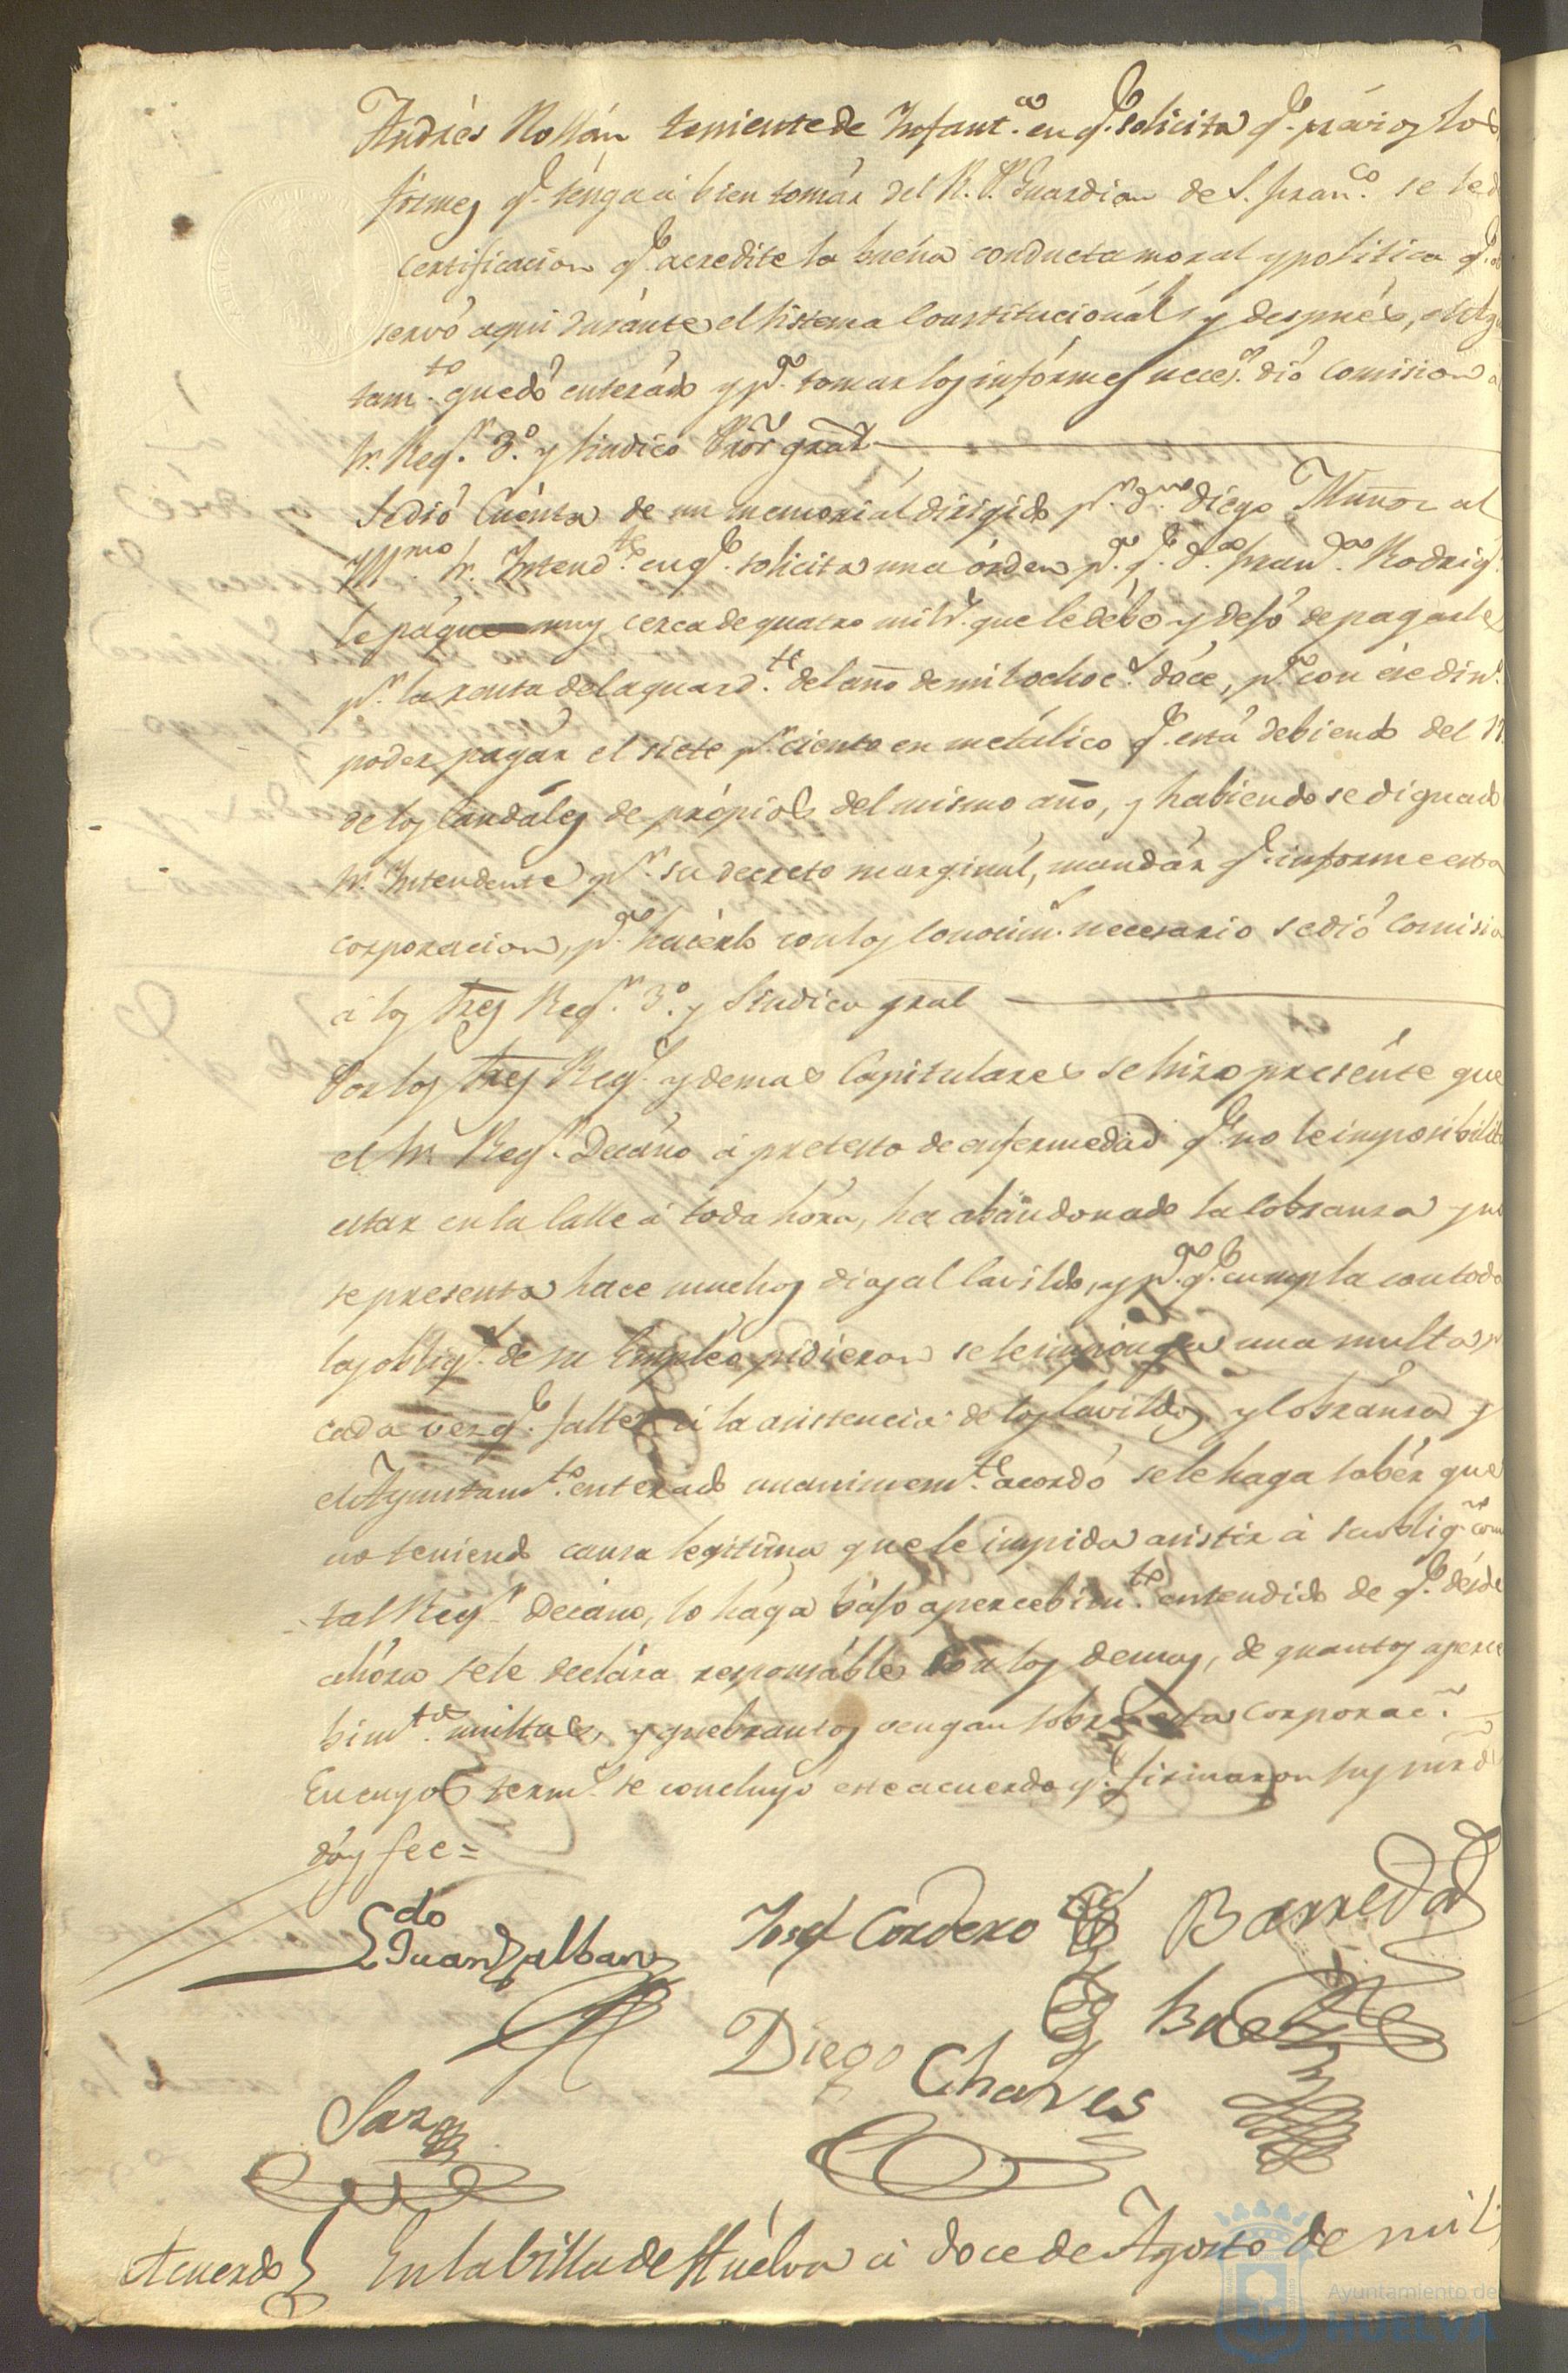 Andrés Roldán teniente de Infant.ª en q.e solicita q.e prévios los
fórmes q.e ténga á bien tomár del R. P. Guardian de S. Fran.co se le d
certificacion q.e acredite la buéna conducta moral y politica q.e ob
servó aqui duránte el sistema Constitucionál y después, el Ayu
tam.to quedó enterádo y p.a tomar los infórmes neces.s dió comision á
Sr. Reg.r 3.º y Sindico Prór grál
Se dió Cuénta de un memoriál dirigido p.r d.n Diego Muñoz al
Yll.mo Sr. Intend.te en q.e solicita una órden p.a q.e d.a Fran.ca Rodrig.
le págue muy cerca de quatro mil r.s que le débe y dejó de pagarle
p.r la renta del aguard.te del año de mil ochoc.s dóce, p.a con ése din.
poder pagár el siete p.r ciento en metálico q.e está debiendo del R.
de los Caudáles de própios del mismo año, y habiendose dignado
Sr. Intendente p.r su decreto marginál, mandár q.e informe esta
corporacion, p.a hacérlo con los Conocim.s necesario se dió Comisio
á los Sres Reg.r 3.º y Sindico gral
Por los Sres Reg.s y demas Capitulares se hizo presénte que
el Sr. Reg.r Decáno á pretesto de enfermedád q.e no le imposibilita
estar en la Calle á toda hóra, ha abandonado la Cobranza y no
se presenta hace muchos dias al Cavildo, y p.a q.e cumpla con toda
las oblig.s de su Empléo pidieron se le impónga una multa p.r
cada vez q.e falte á la asistencia de los Cavildos y Cobránza y
el Ayuntam.to enterado unanimem.te acordó se le haga sabér que
no teniendo causa legitima que le impida asistir á su oblig.n com
tal Reg.r Decáno, lo hága bájo apercebim.to entendido de q.e désde
ahóra se le declára responsáble con los demas, de quantos aperce
bim.tos multas, y quebrantos vengan sobre esta Corporac.n
En cuyos term.s se concluyó este acuerdo q.e firmaron sus mrds
dóy fée =
L.do Juan Zalbans
Josef Cordero
Barreda
Diego Chaves
Baez
Sarz
Acuerdo
En la Villa de Huélva á doce de Agosto de mil
Ayuntamiento de
HUELVA